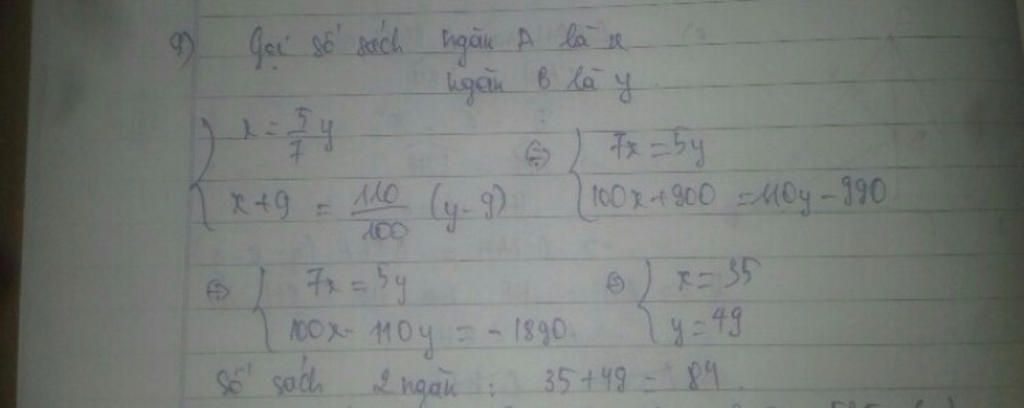 9) Gọi số sách ngăn A là x
ngăn B là y
{ x = 5/7 y
x + 9 = 110/100 (y - 9)
⇔ { 7x = 5y
100x + 900 = 110y - 990
⇔ { 7x = 5y
100x - 110y = - 1890
⇔ { x = 35
y = 49
Số sách 2 ngăn : 35 + 49 = 84.